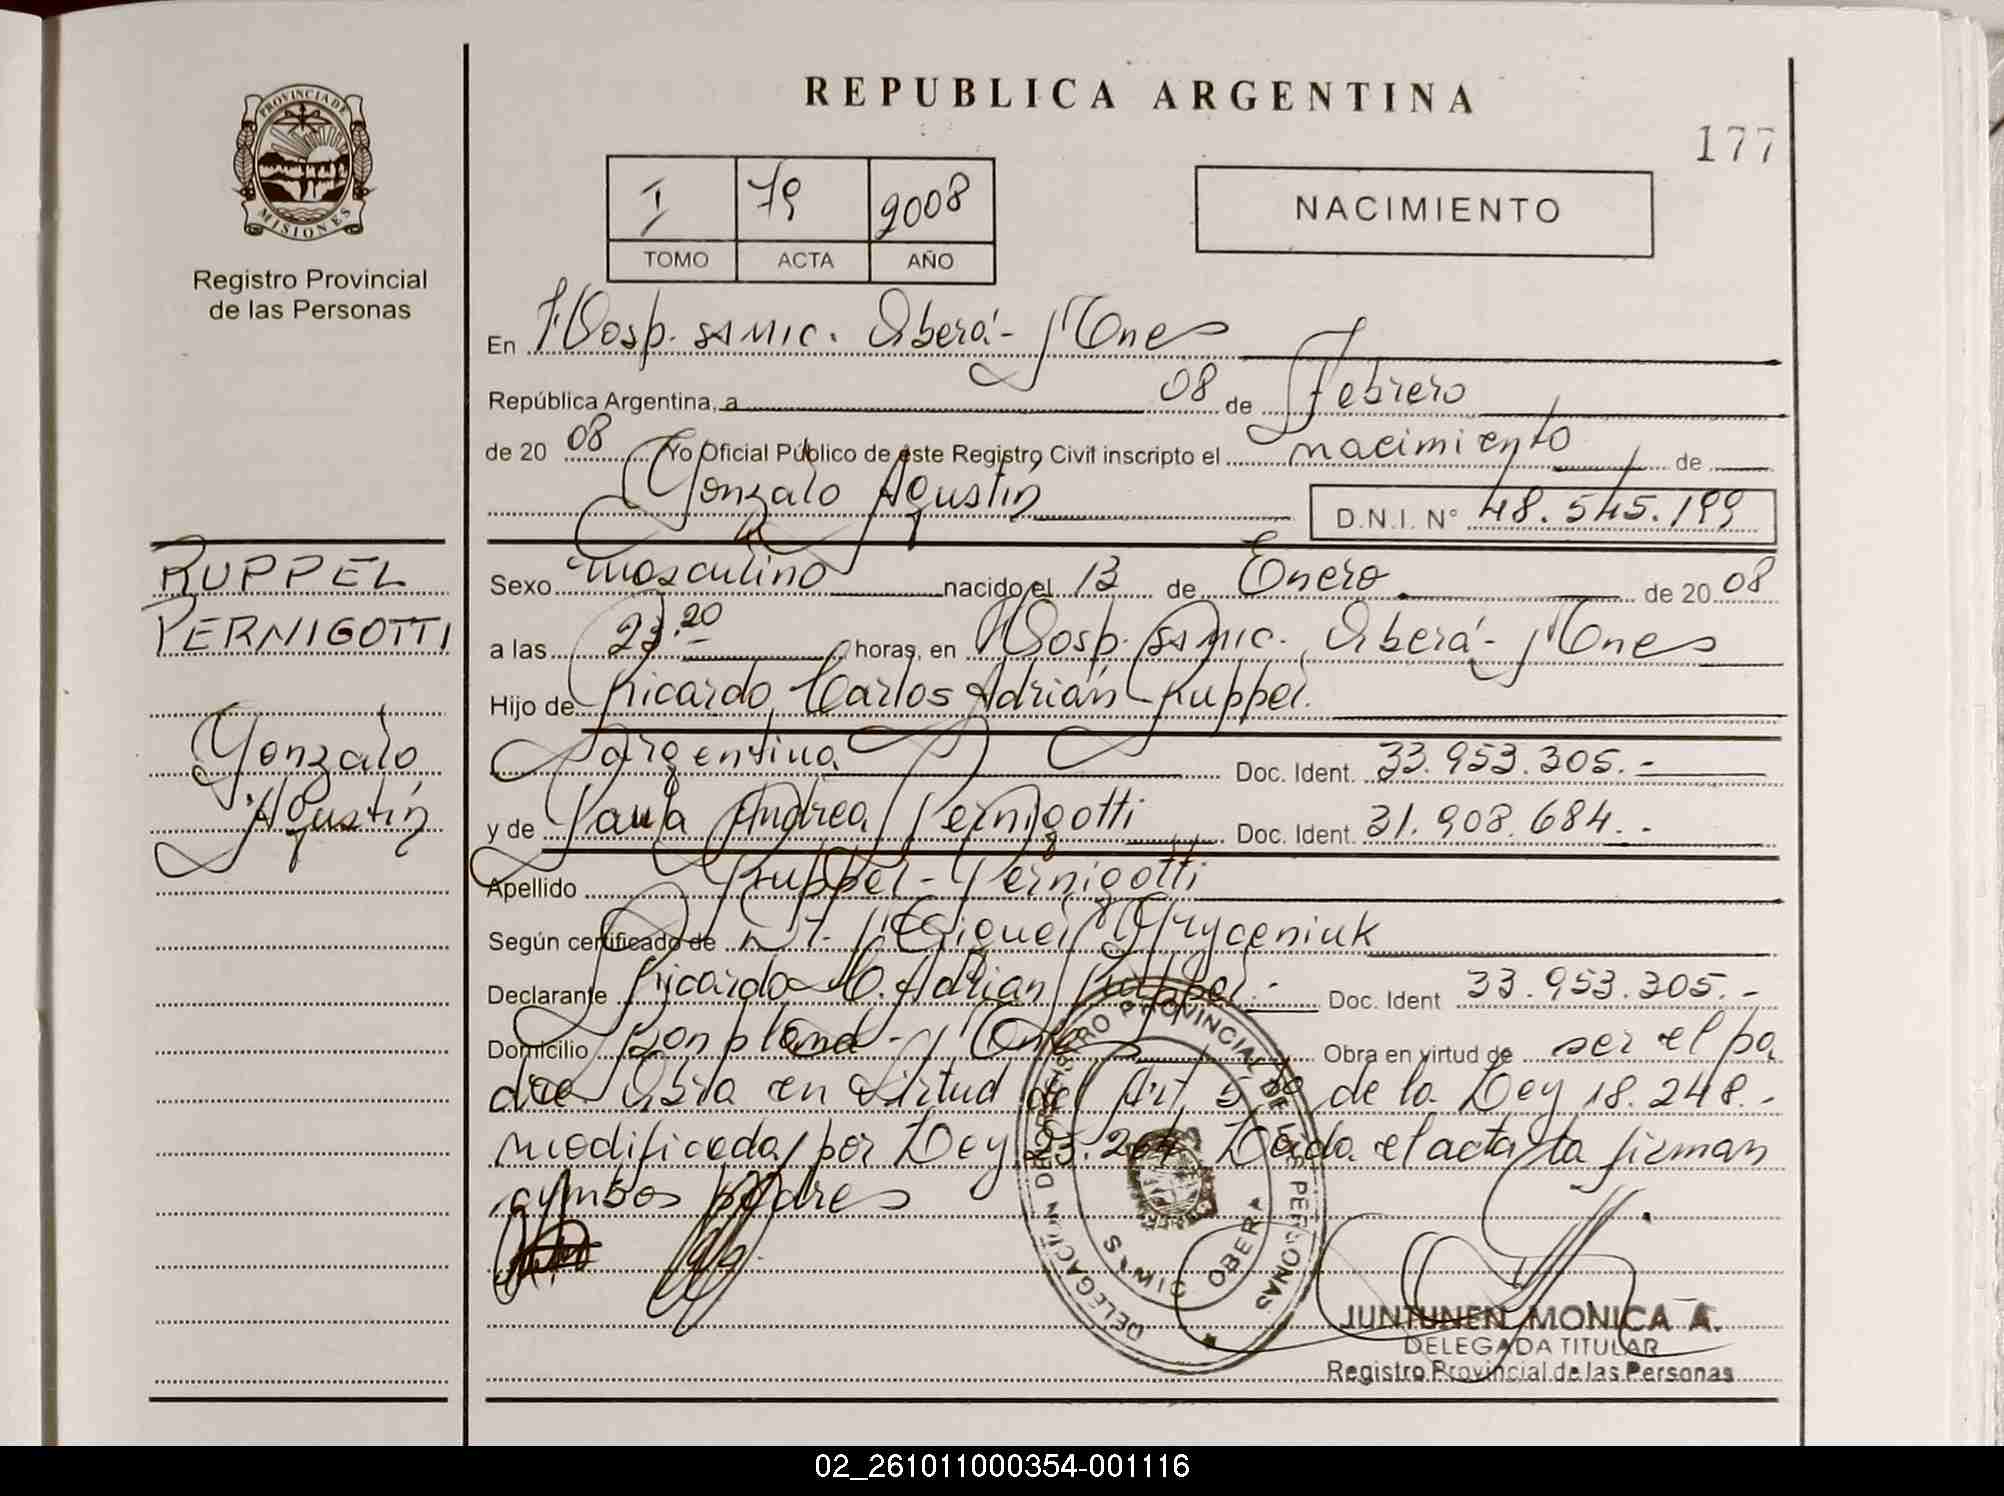 REPUBLICA ARGENTINA
177
PROVINCIA DE MISIONES
Registro Provincial
de las Personas
I 79 2008
TOMO ACTA AÑO
NACIMIENTO
En Hosp. SAMIC. Oberá - Mnes
República Argentina, a 08 de Febrero
de 2008 Yo Oficial Público de este Registro Civil inscripto el nacimiento de
Gonzalo Agustín D.N.I. N° 48.545.199
RUPPEL
PERNIGOTTI
Gonzalo
Agustín
Sexo masculino nacido el 13 de Enero de 2008
a las 23.20 horas, en Hosp. SAMIC. Oberá - Mnes
Hijo de Ricardo Carlos Adrián Ruppel.
Argentina Doc. Ident. 33.953.305.-
y de Paula Andrea Pernigotti Doc. Ident. 31.908.684.-
Apellido Ruppel - Pernigotti
Según certificado de Miguel Hryceniuk
Declarante Ricardo C. Adrian Ruppel.- Doc. Ident 33.953.305.-
Domicilio Bonpland - Mnes Obra en virtud de ser el pa
dre Obra en virtud del Art 5to de la Ley 18.248.-
modificada por Ley 23.264 Leída el acta la firman
ambos padres
DELEGACION DEL REGISTRO PROVINCIAL DE LAS PERSONAS
SAMIC OBERA
JUNTUNEN MONICA A.
DELEGADA TITULAR
Registro Provincial de las Personas
02_261011000354-001116